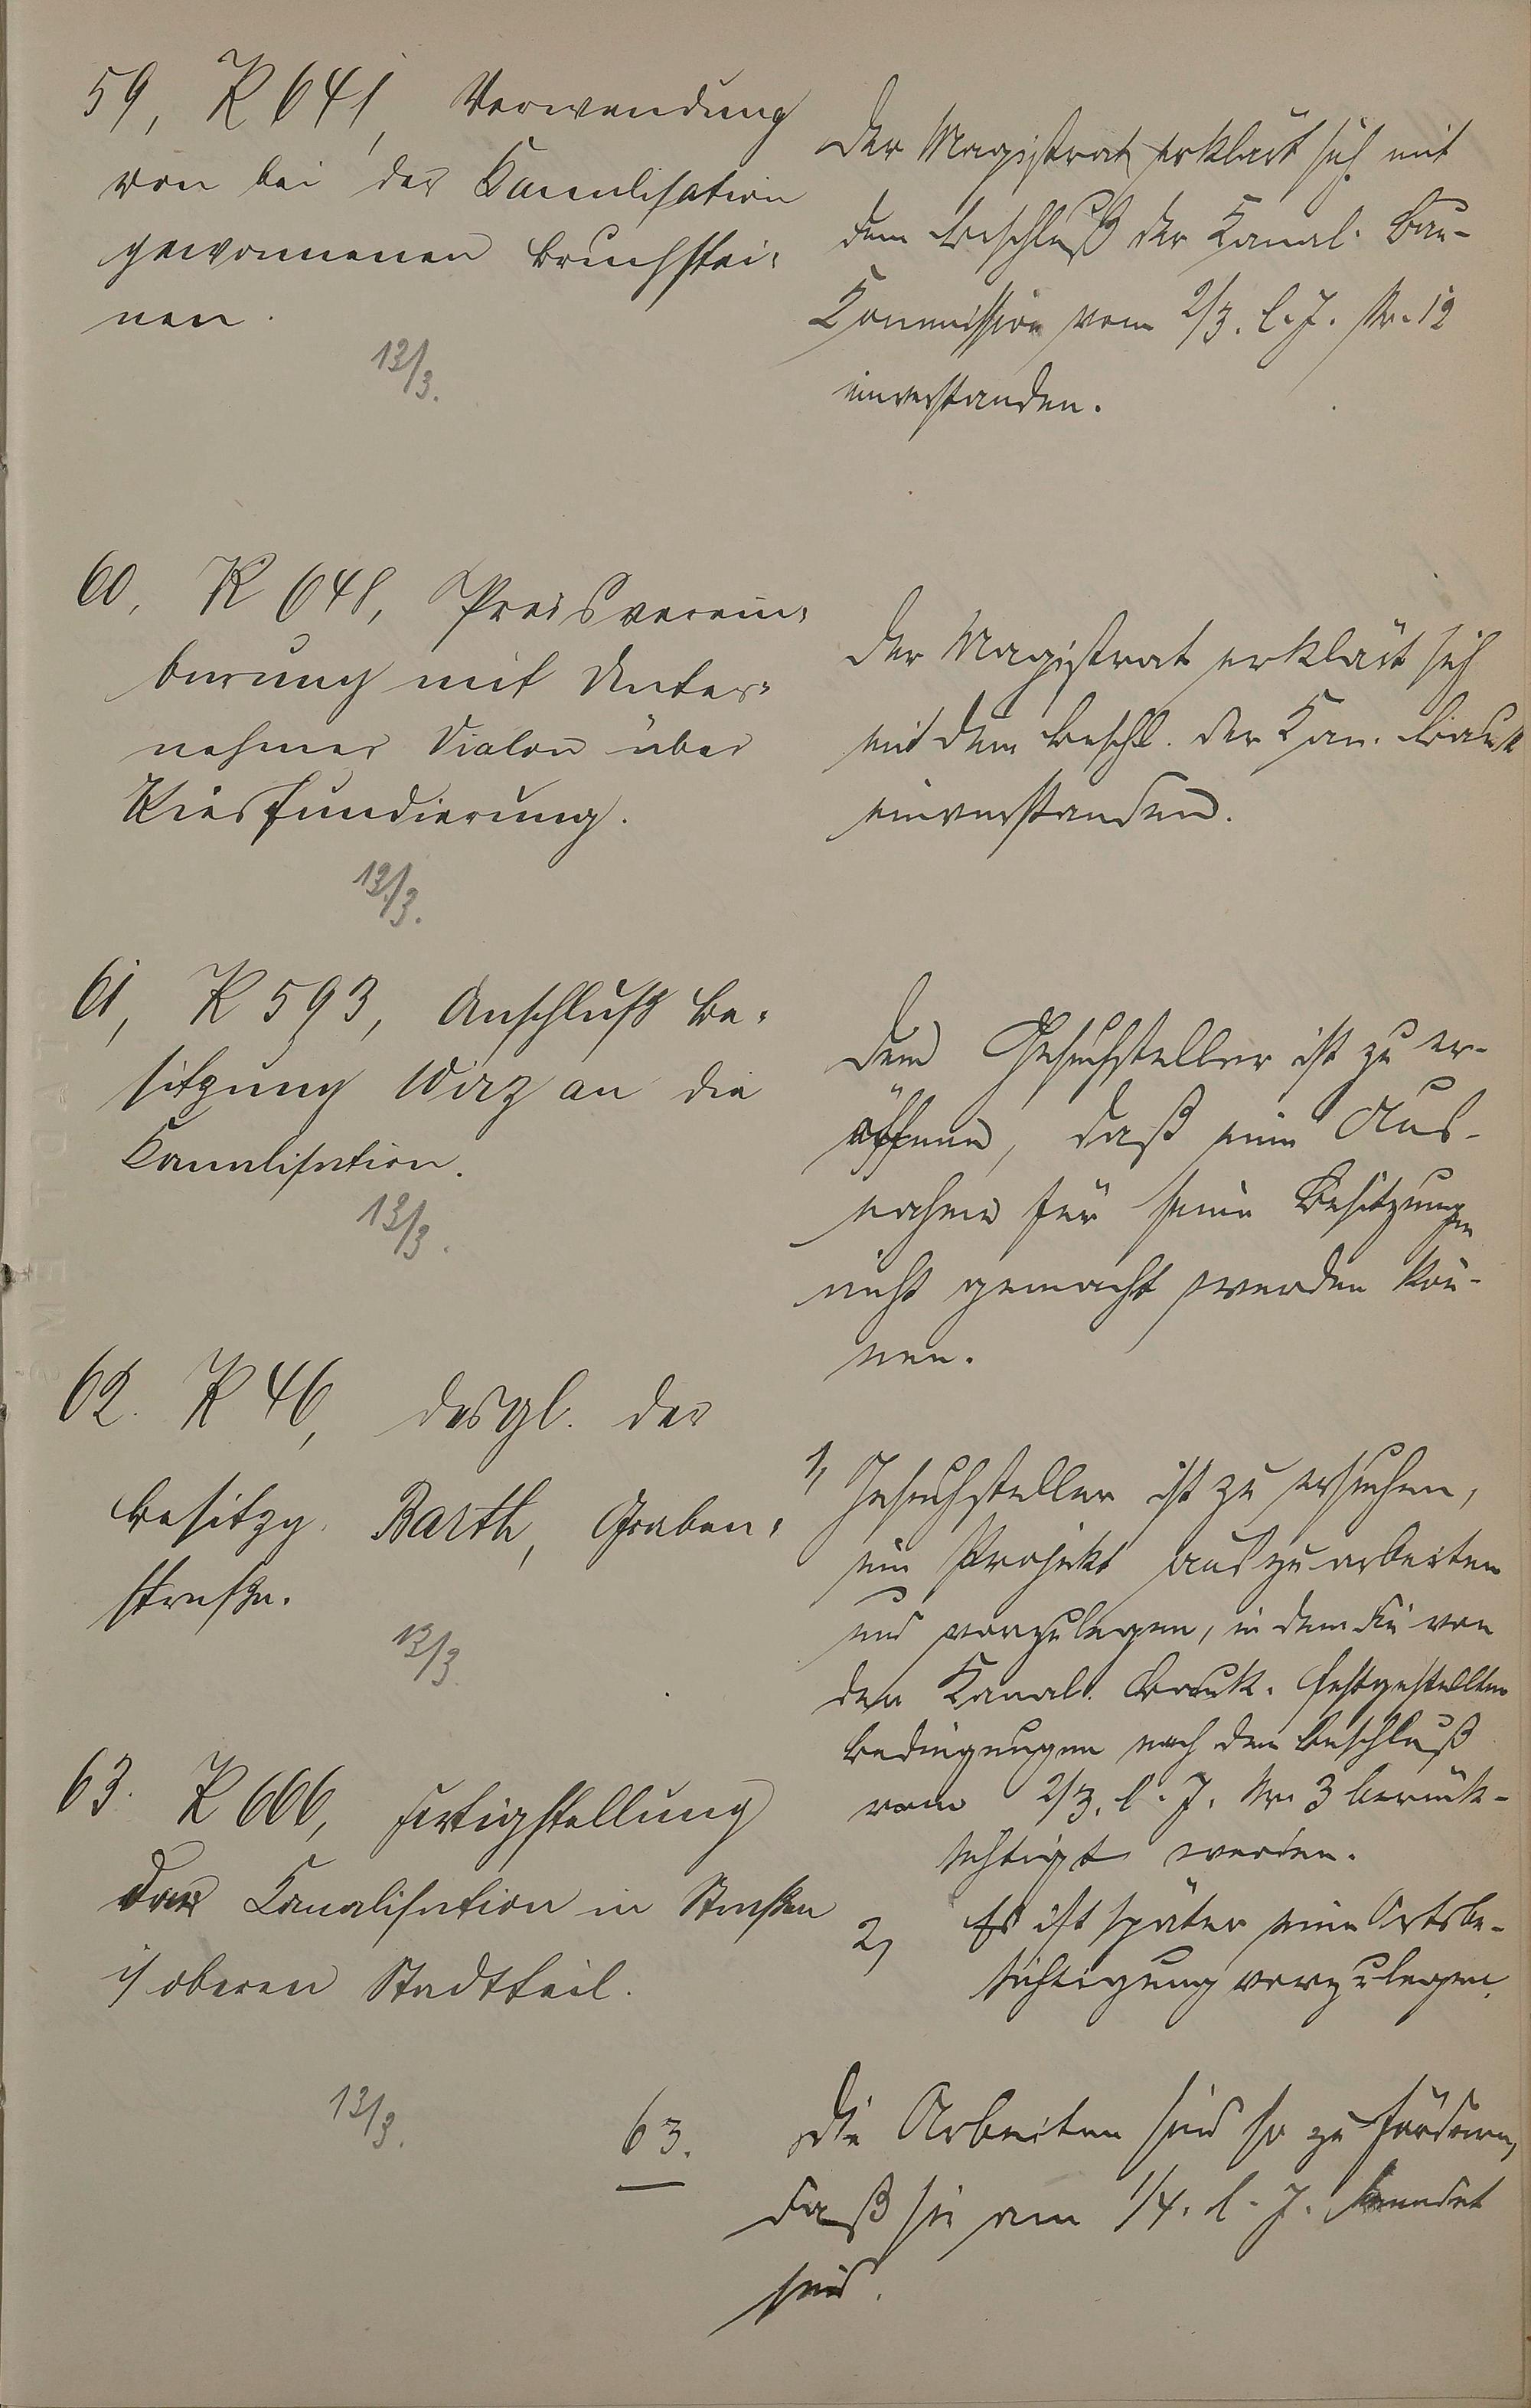 59, K 641, Verwendung
von bei der Kanalisation
gewonnenen Bruchstei-
nen.
13/3.
Der Magistrat erklärt sich mit
dem Beschluß der Kanal. Bau-
Kommission vom 2/3. l. J. Nr. 12
einverstanden.
60, K 648, Preisverein-
barung mit Unter-
nehmer Vialon über
Kiesfundierung.
13/3.
Der Magistrat erklärt sich
mit dem Beschl. der Kan. Bauk
einverstanden.
61, K 593, Anschluß Be-
sitzung Wirz an die
Kanalisation.
13/3.
Dem Gesuchsteller ist zu er-
öffnen, daß eine Aus-
nahme für seine Besitzungen
nicht gemacht werden kön-
nen.
62. K 46, desgl. der
Besitzg. Barth, Graben-
straße.
13/3.
1, Gesuchsteller ist zu ersuchen,
ein Projekt auszuarbeiten
und vorzulegen, in dem die von
der Kanal. Bauk. festgestellten
Bedingungen nach dem Beschluß
vom 2/3. l. J. Nr. 3 berück-
sichtigt werden.
2, Es ist später eine Ortsbe-
sichtigung vorzulegen.
63. K 666, Fertigstellung
der Kanalisation in Straßen
i/ oberen Stadtteil.
13/3.
63. Die Arbeiten sind so zu fördern,
daß sie am 1/4. l. J. beendet
sind.